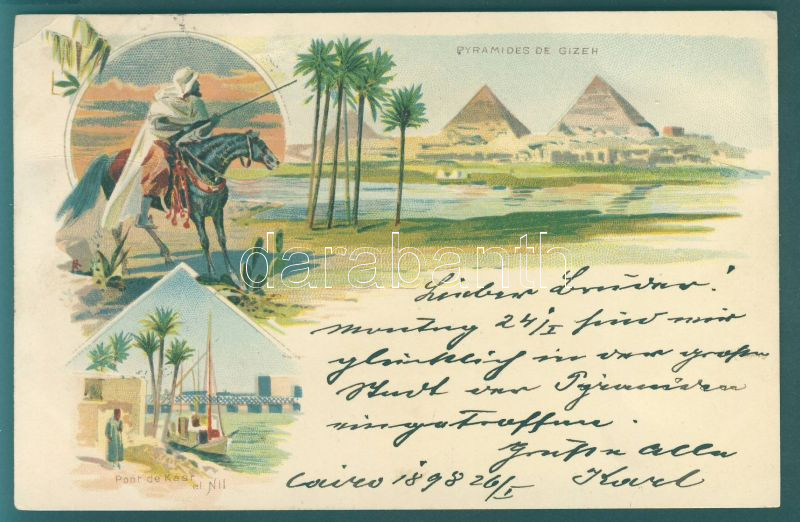 PYRAMIDES DE GIZEH
darabanth
Lieber Bruder!
Montag 24/I sind wir
glücklich in der großen
Stadt der Pyramiden
eingetroffen.
Grüße Alle
Cairo 1898 26/I Karl
Pont de Kasr
el Nil